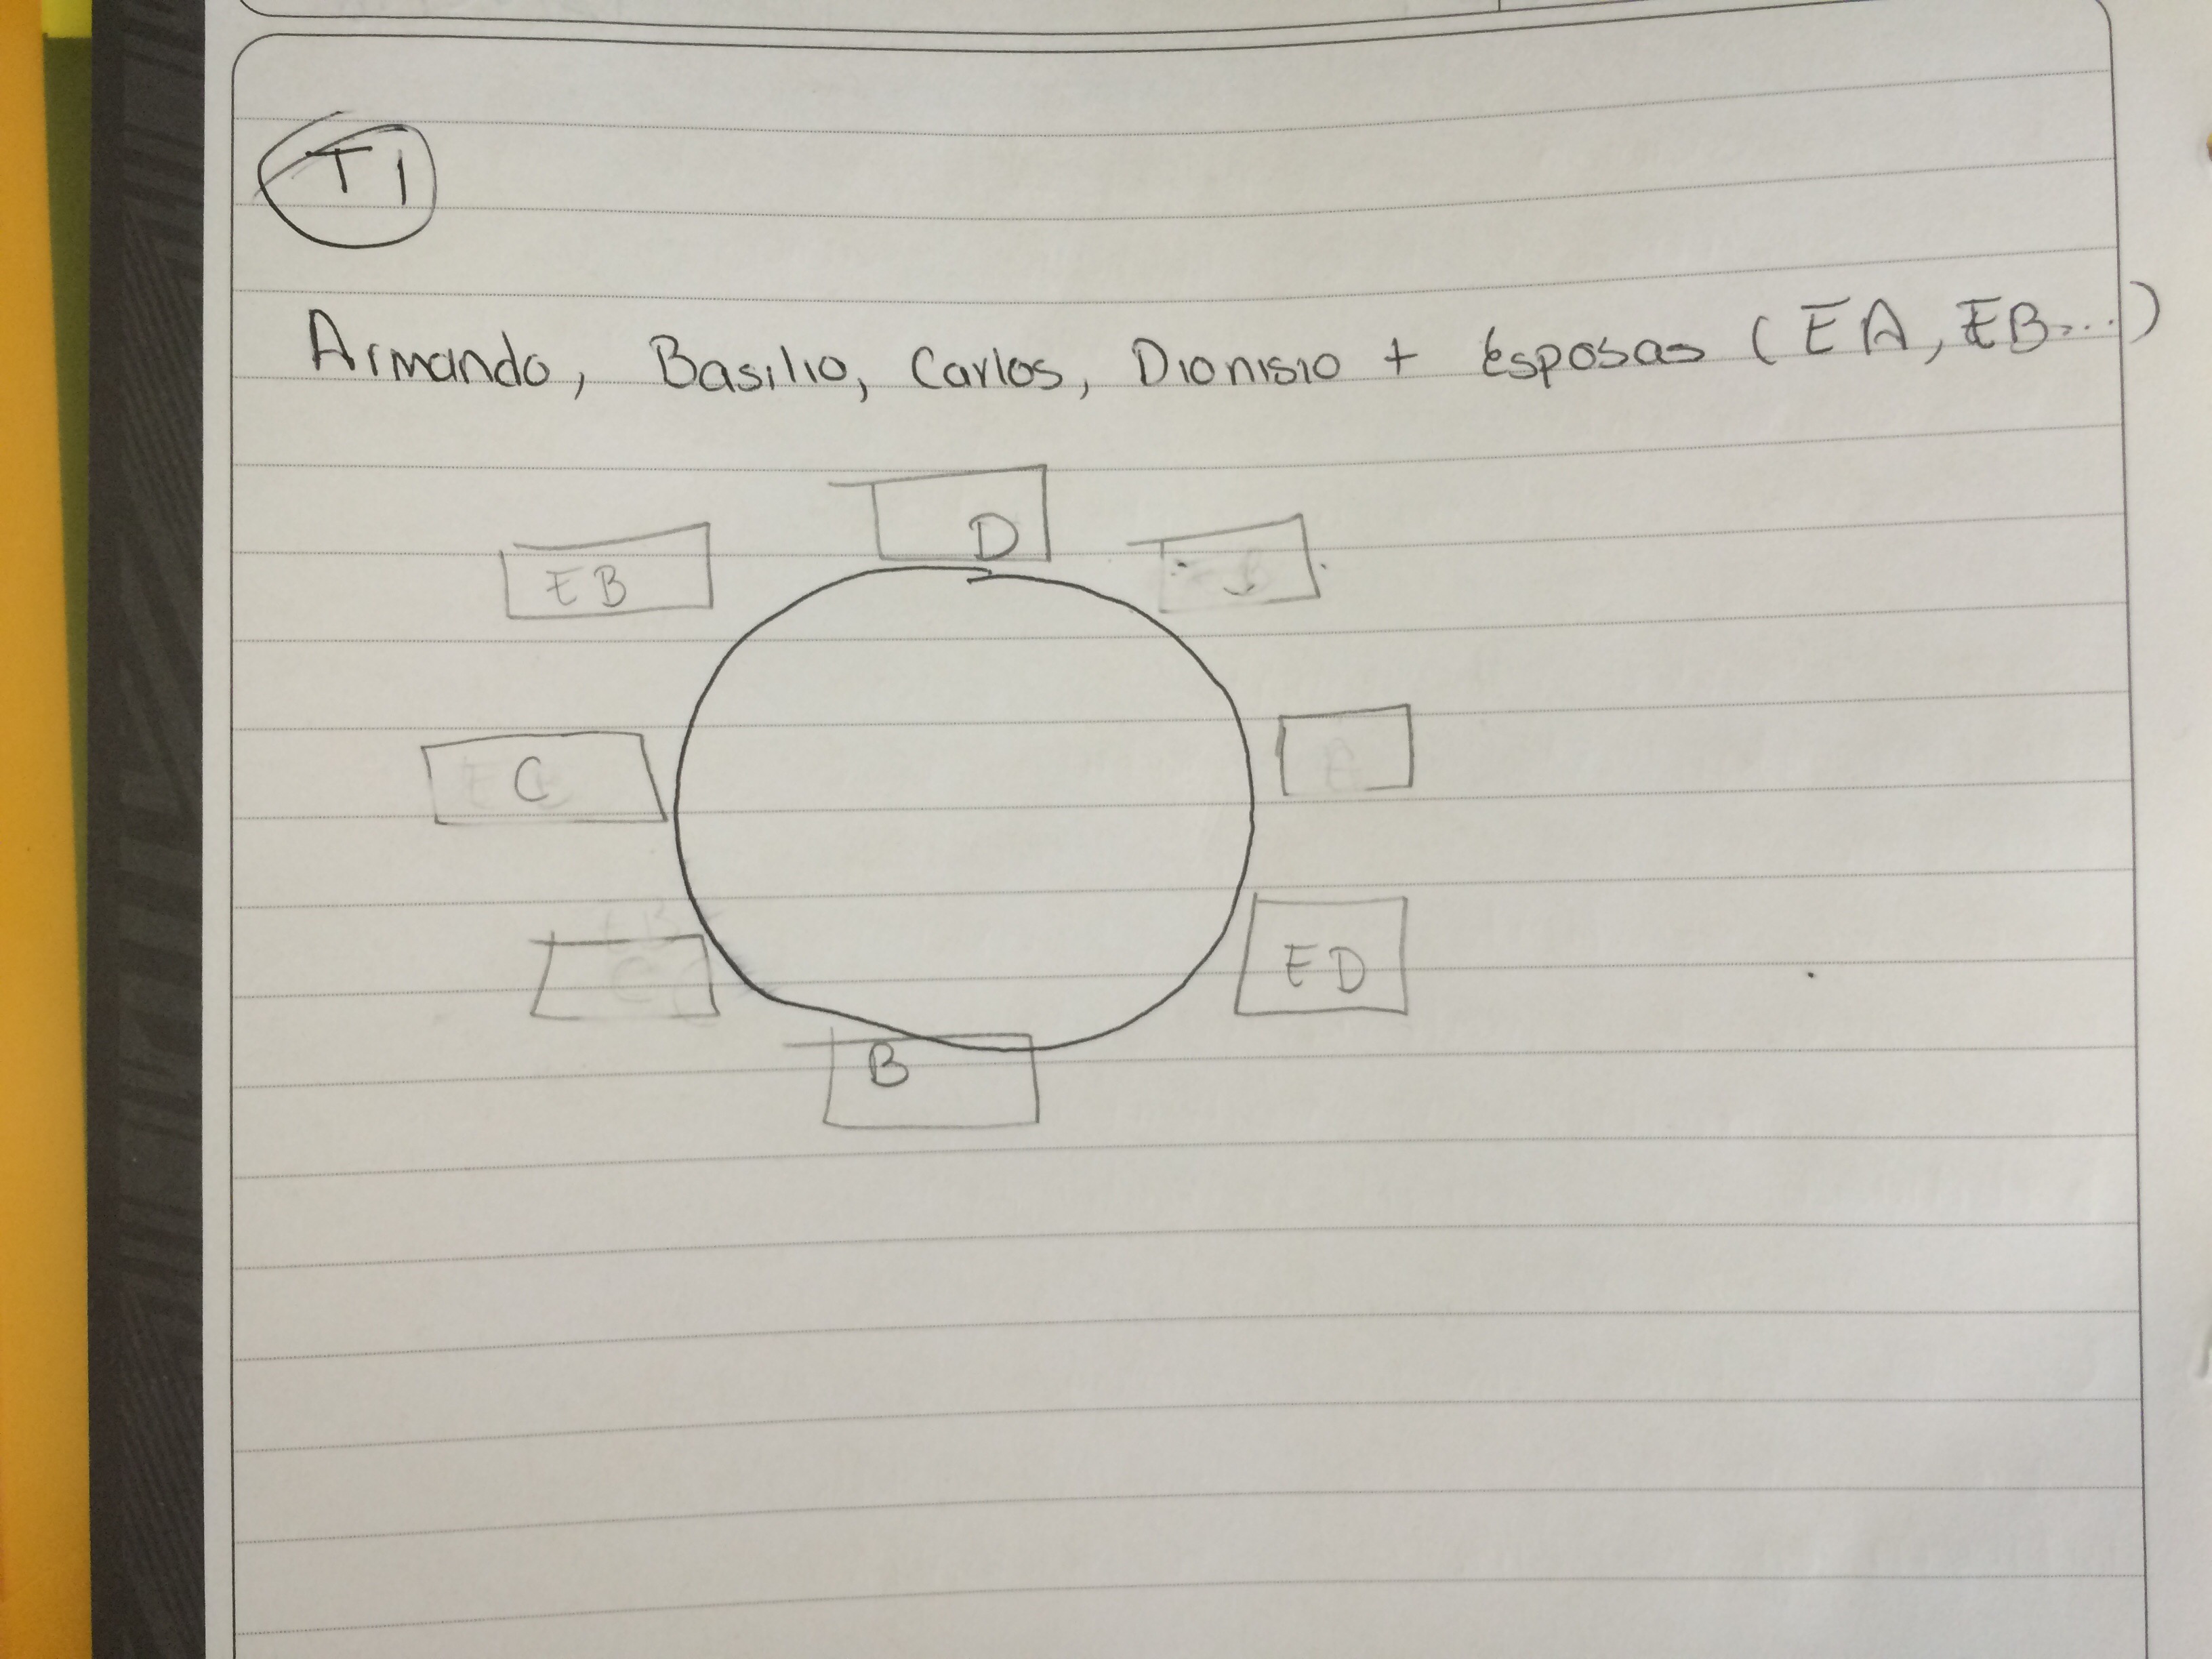 T1
Armando, Basilio, Carlos, Dionisio + Esposas (EA, EB...)
D
EB
C
B
ED